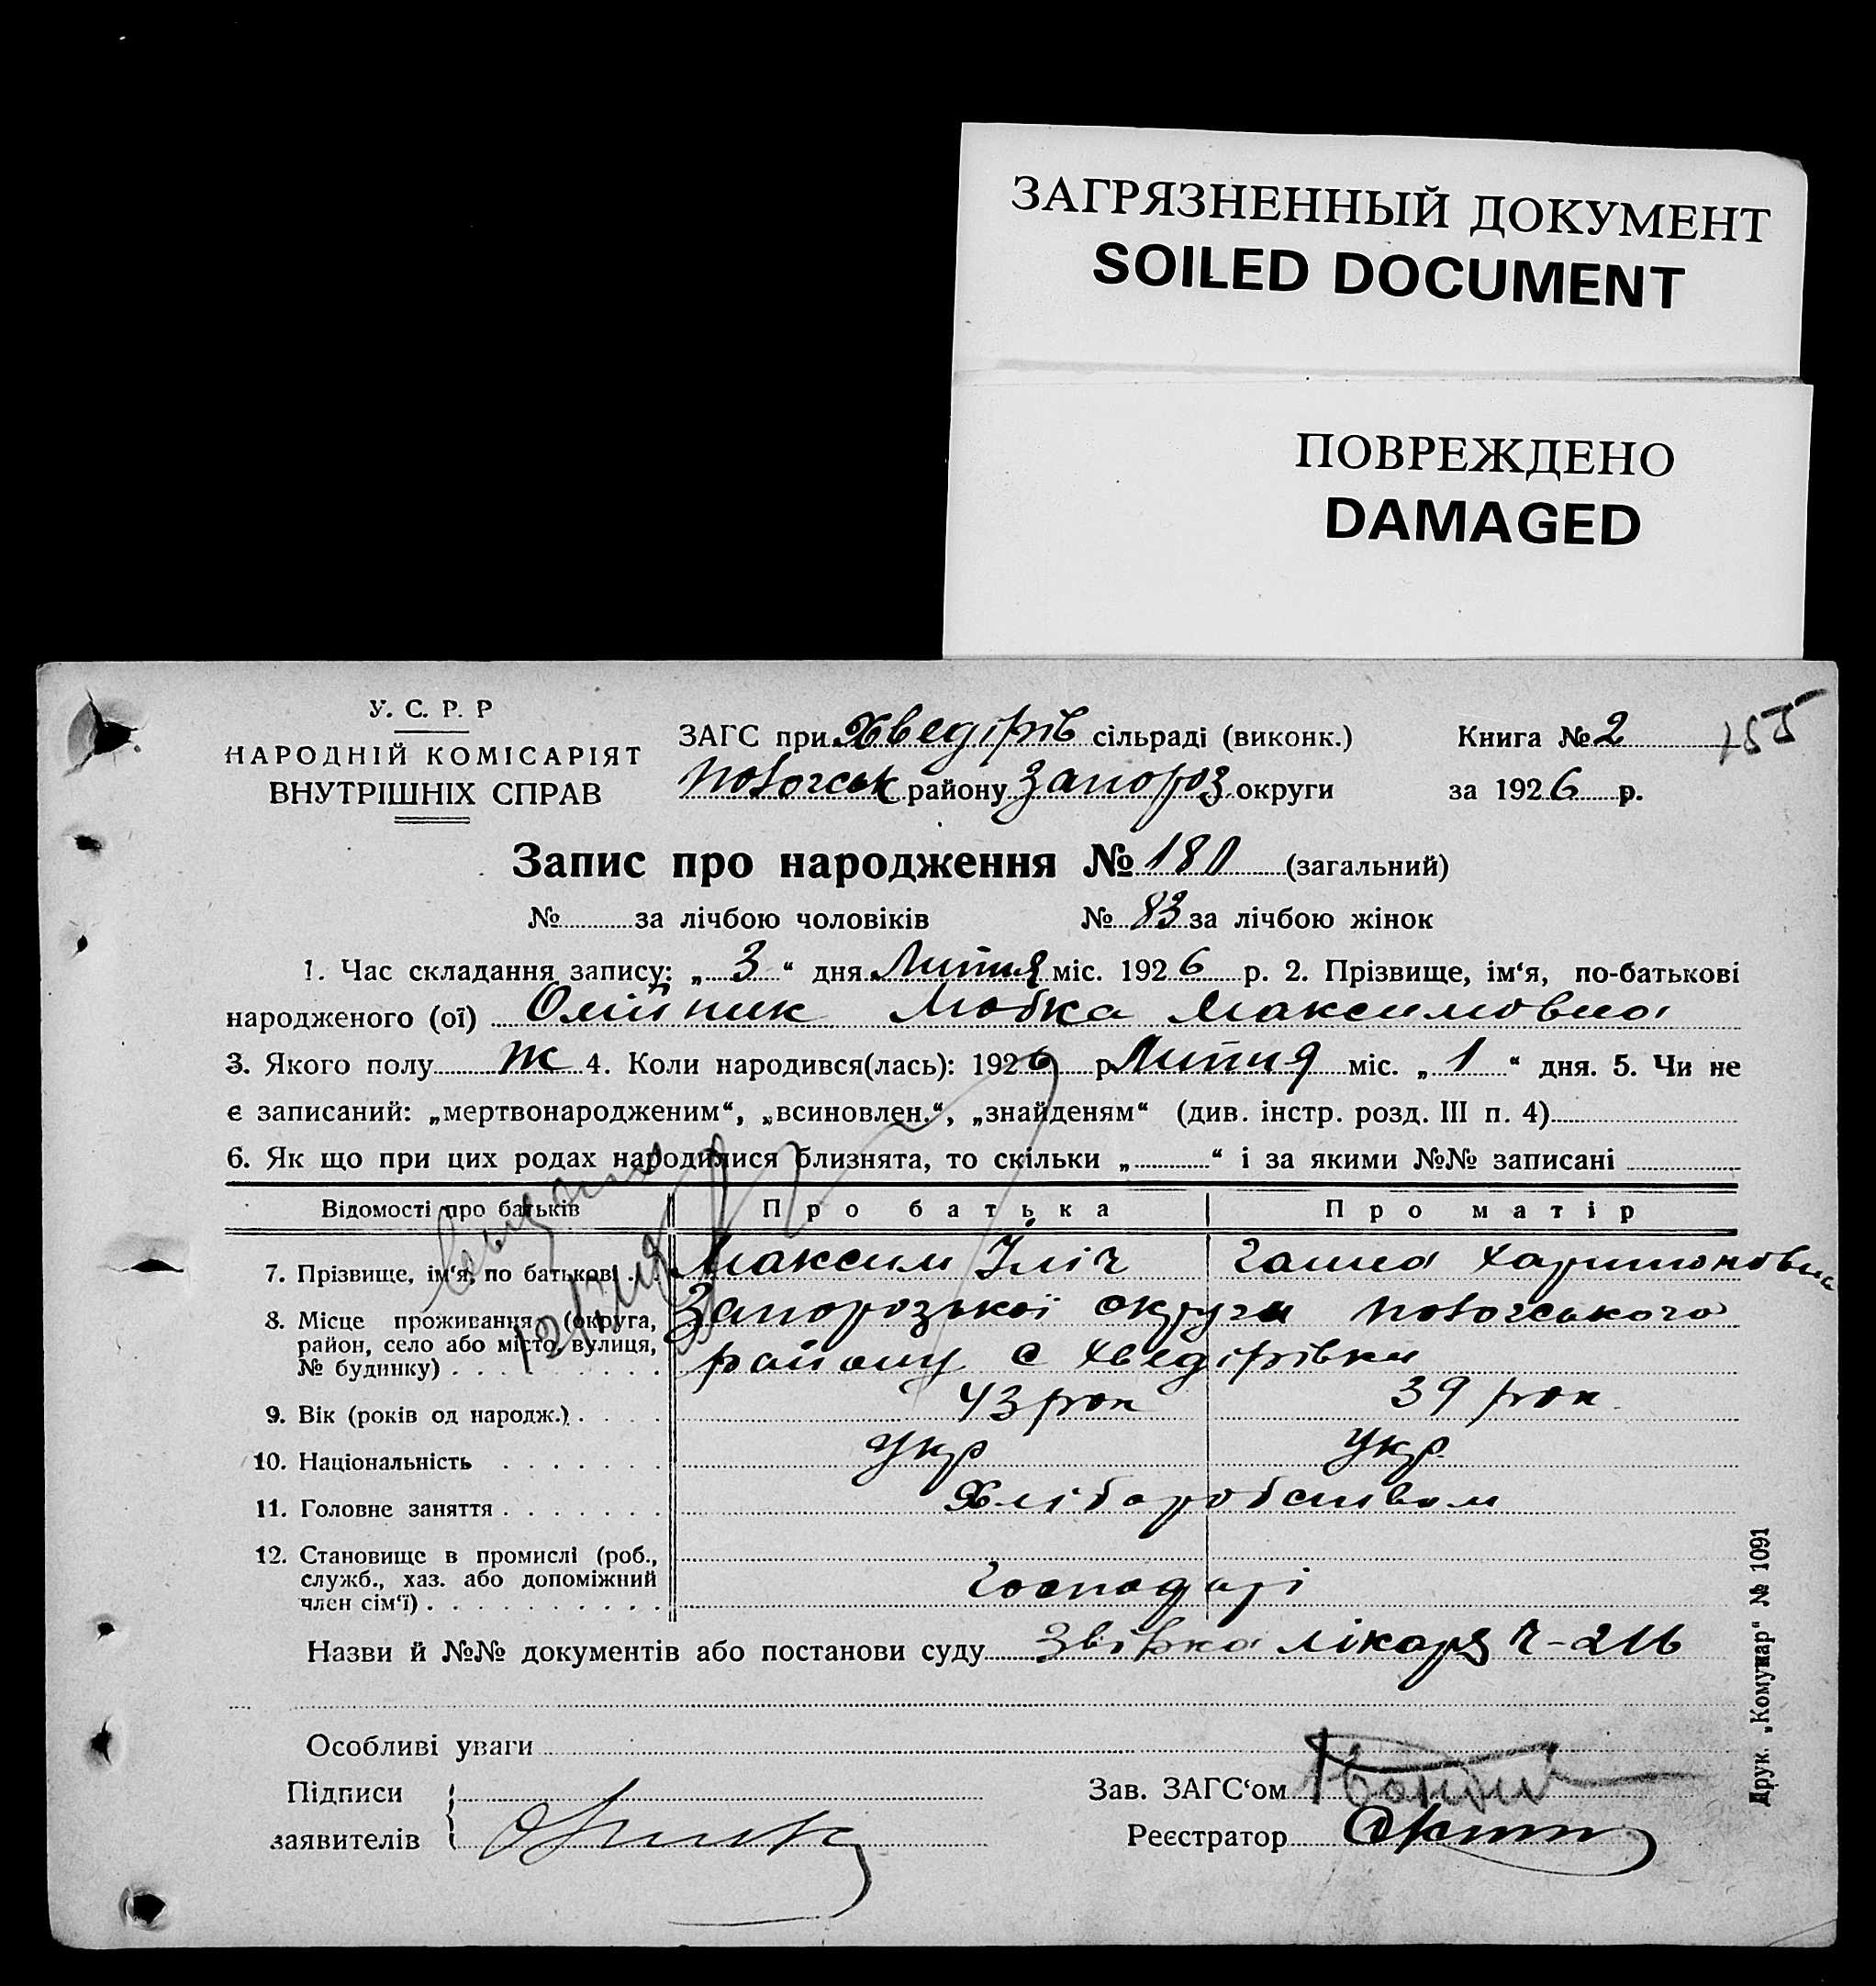 ЗАГРЯЗНЕННЫЙ ДОКУМЕНТ
SOILED DOCUMENT
ПОВРЕЖДЕНО
DAMAGED
155
У. С. Р. Р
НАРОДНІЙ КОМІСАРІЯТ
ВНУТРІШНІХ СПРАВ
ЗАГС при Хведірів сільраді (виконк.) Книга № 2
району Запороз округи за 1926 р.
Запис про народження № 180 (загальний)
№ за лічбою чоловіків № 83 за лічбою жінок
1. Час складання запису: „ 3 “ дня Липня міс. 1926 р. 2. Прізвище, ім‘я, по-батькові
народженого (ої) Олійник Любка Максимовна
3. Якого полу Ж 4. Коли народився(лась): 1926 р Липня міс. „ 1 “ дня. 5. Чи не
є записаний: „мертвонародженим“, „всиновлен.“, „знайденям“ (див. інстр. розд. III п. 4)
6. Як що при цих родах народилися близнята, то скільки „ “ і за якими №№ записані
Відомості про батьків Про батька Про матір
7. Прізвище, ім‘я, по батькові . . Максим Ілліч Гашка Харитоновна
8. Місце проживання (округа, район, село або місто, вулиця, № будинку) . . . . Запорозької округи
району с Хведірівки
9. Вік (років од народж.) . . . . 43 рок 39 рок
10. Національність . . . . . . . Укр Укр.
11. Головне заняття . . . . . . . Хліборобством
12. Становище в промислі (роб., служб., хаз. або допоміжний член сім‘ї) . . . . Господарі
Назви й №№ документів або постанови суду лікаря Ч-216
Особливі уваги
Підписи
заявителів
Зав. ЗАГС‘ом
Реєстратор
Друк. „Комунар“ № 1091